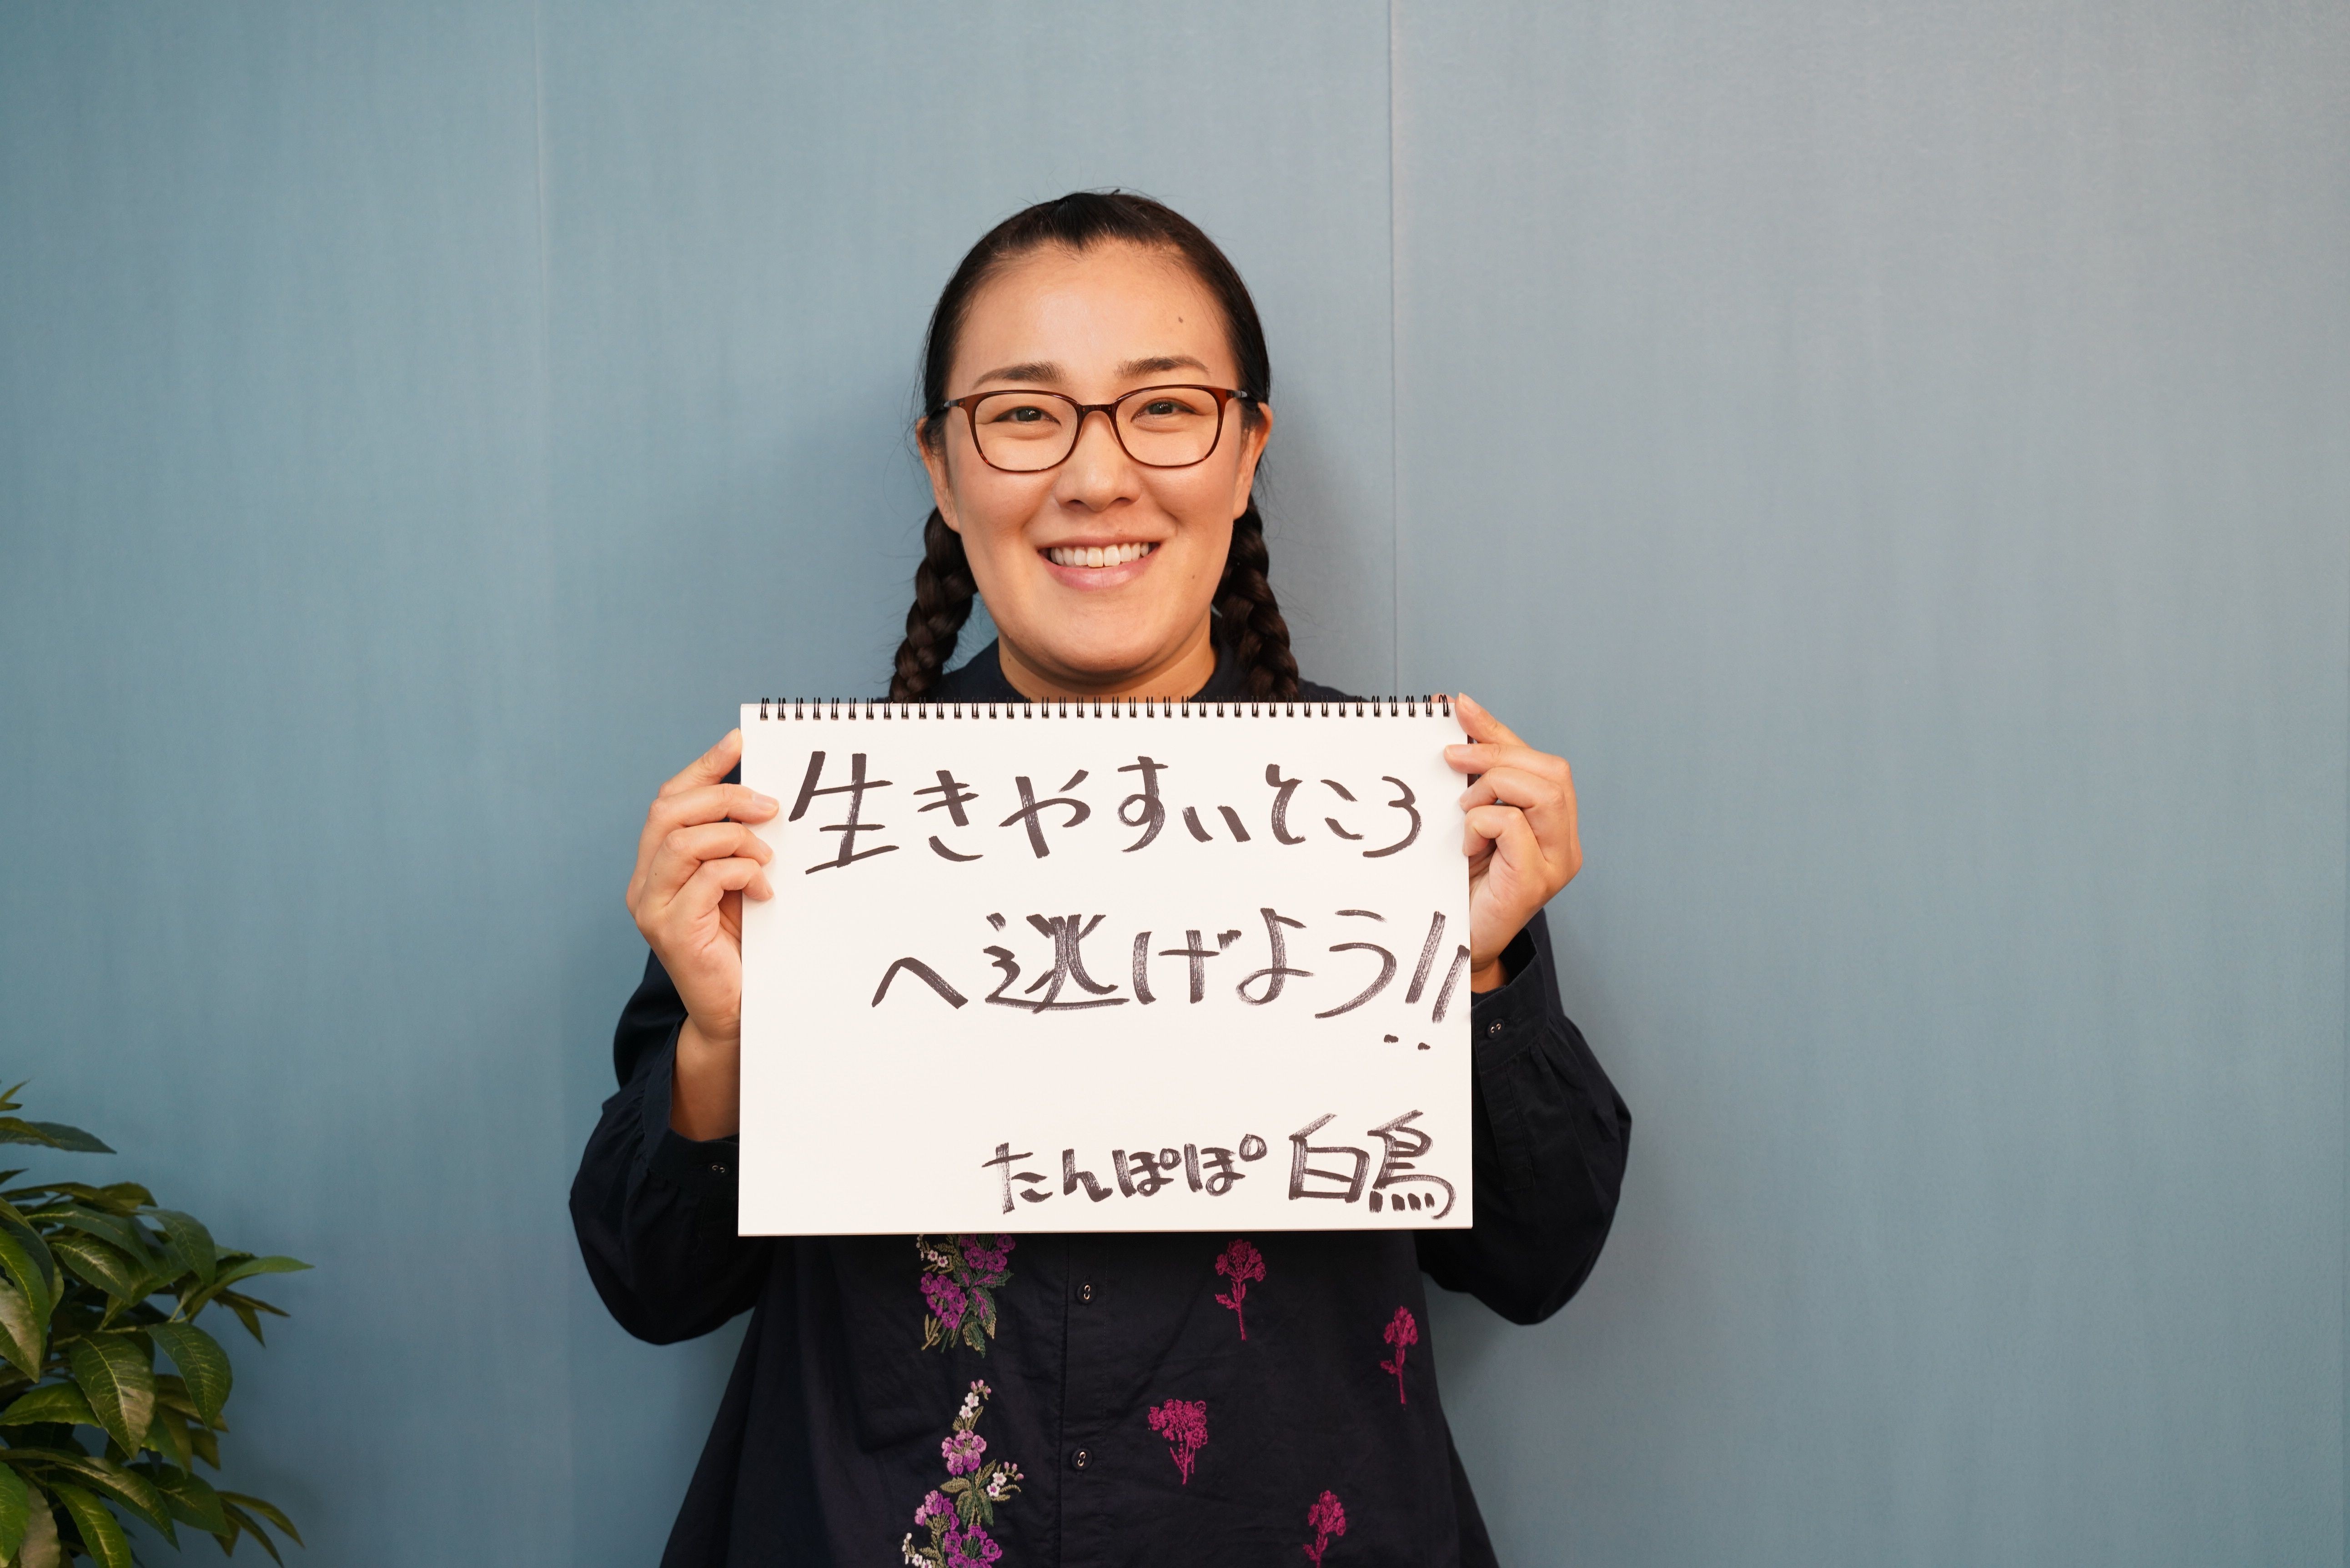 生きやすいところ
へ逃げよう!!
たんぽぽ 白鳥